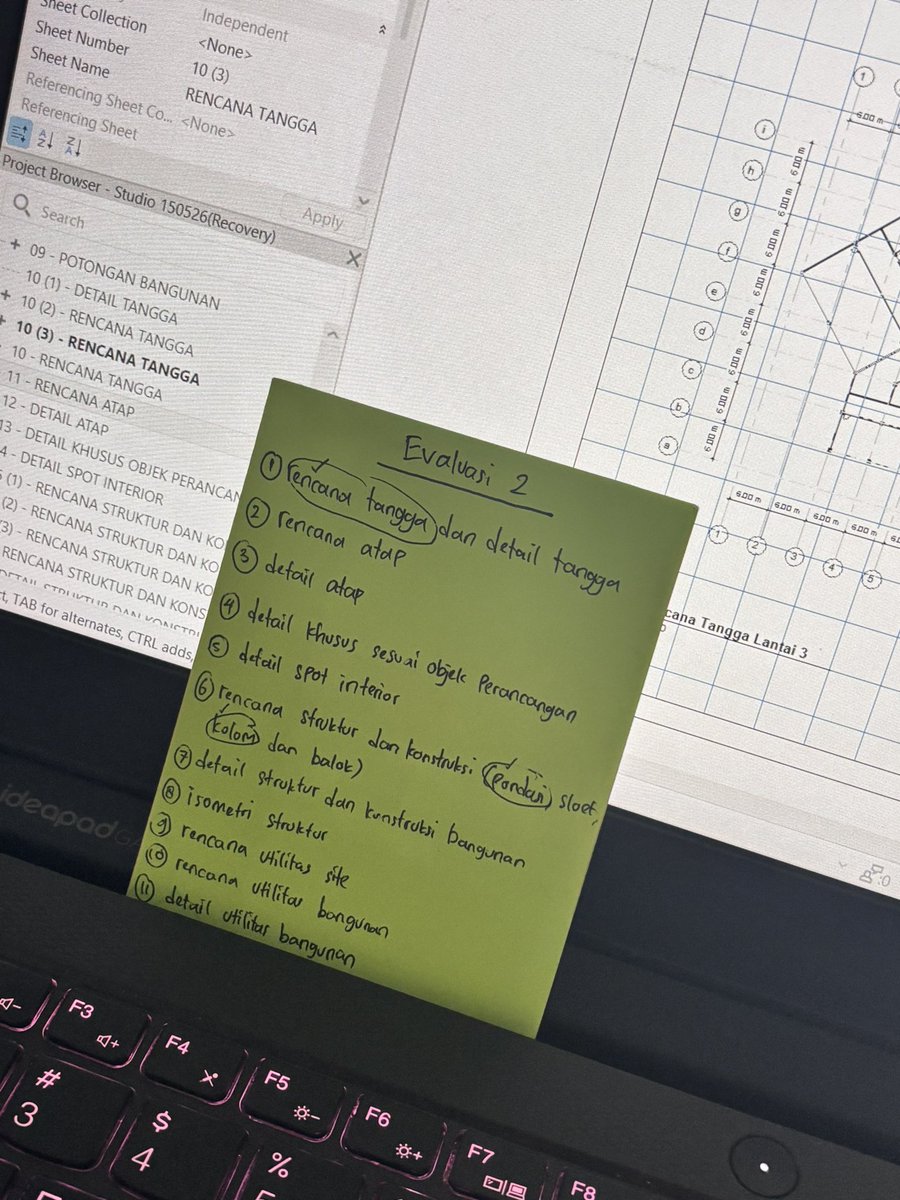 Sheet Collection
Independent
Sheet Number
<None>
Sheet Name
10 (3)
Referencing Sheet Co...
RENCANA TANGGA
Referencing Sheet
<None>
Apply
Project Browser - Studio 150526(Recovery)
Search
09 - POTONGAN BANGUNAN
10 (1) - DETAIL TANGGA
10 (2) - RENCANA TANGGA
10 (3) - RENCANA TANGGA
10 - RENCANA TANGGA
11 - RENCANA ATAP
12 - DETAIL ATAP
13 - DETAIL KHUSUS OBJEK PERANCAN
4 - DETAIL SPOT INTERIOR
(1) - RENCANA STRUKTUR DAN KO
(2) - RENCANA STRUKTUR DAN KO
(3) - RENCANA STRUKTUR DAN KO
RENCANA STRUKTUR DAN KONS
DETAIL STRUKTUR DAN KONSTRU
t, TAB for alternates, CTRL adds,
Evaluasi 2
① rencana tangga dan detail tangga
② rencana atap
③ detail atap
④ detail khusus sesuai objek Perancangan
⑤ detail spot interior
⑥ rencana struktur dan konstruksi (Pondasi, sloof,
kolom dan balok)
⑦ detail struktur dan konstruksi bangunan
⑧ isometri struktur
⑨ rencana utilitas site
⑩ rencana utilitas bangunan
⑪ detail utilitas bangunan
i
h
g
f
e
d
c
b
a
6.00 m
6.00 m
6.00 m
6.00 m
6.00 m
6.00 m
6.00 m
6.00 m
1
6.00 m
6.00 m
6.00 m
6.00 m
6.00 m
1
2
3
4
5
cana Tangga Lantai 3
:0
ideapad
F3
F4
F5
F6
F7
F8
#
3
$
4
%